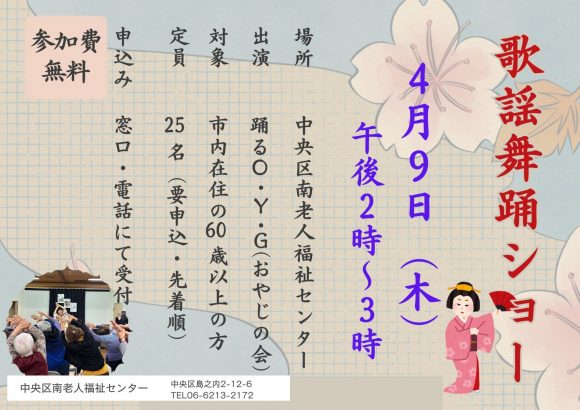 歌謡舞踊ショー
4月9日（木）
午後2時～3時
場所　中央区南老人福祉センター
出演　踊るO・Y・G（おやじの会）
対象　市内在住の60歳以上の方
定員　25名（要申込・先着順）
申込み　窓口・電話にて受付
参加費
無料
中央区南老人福祉センター
中央区島之内2-12-6
TEL06-6213-2172